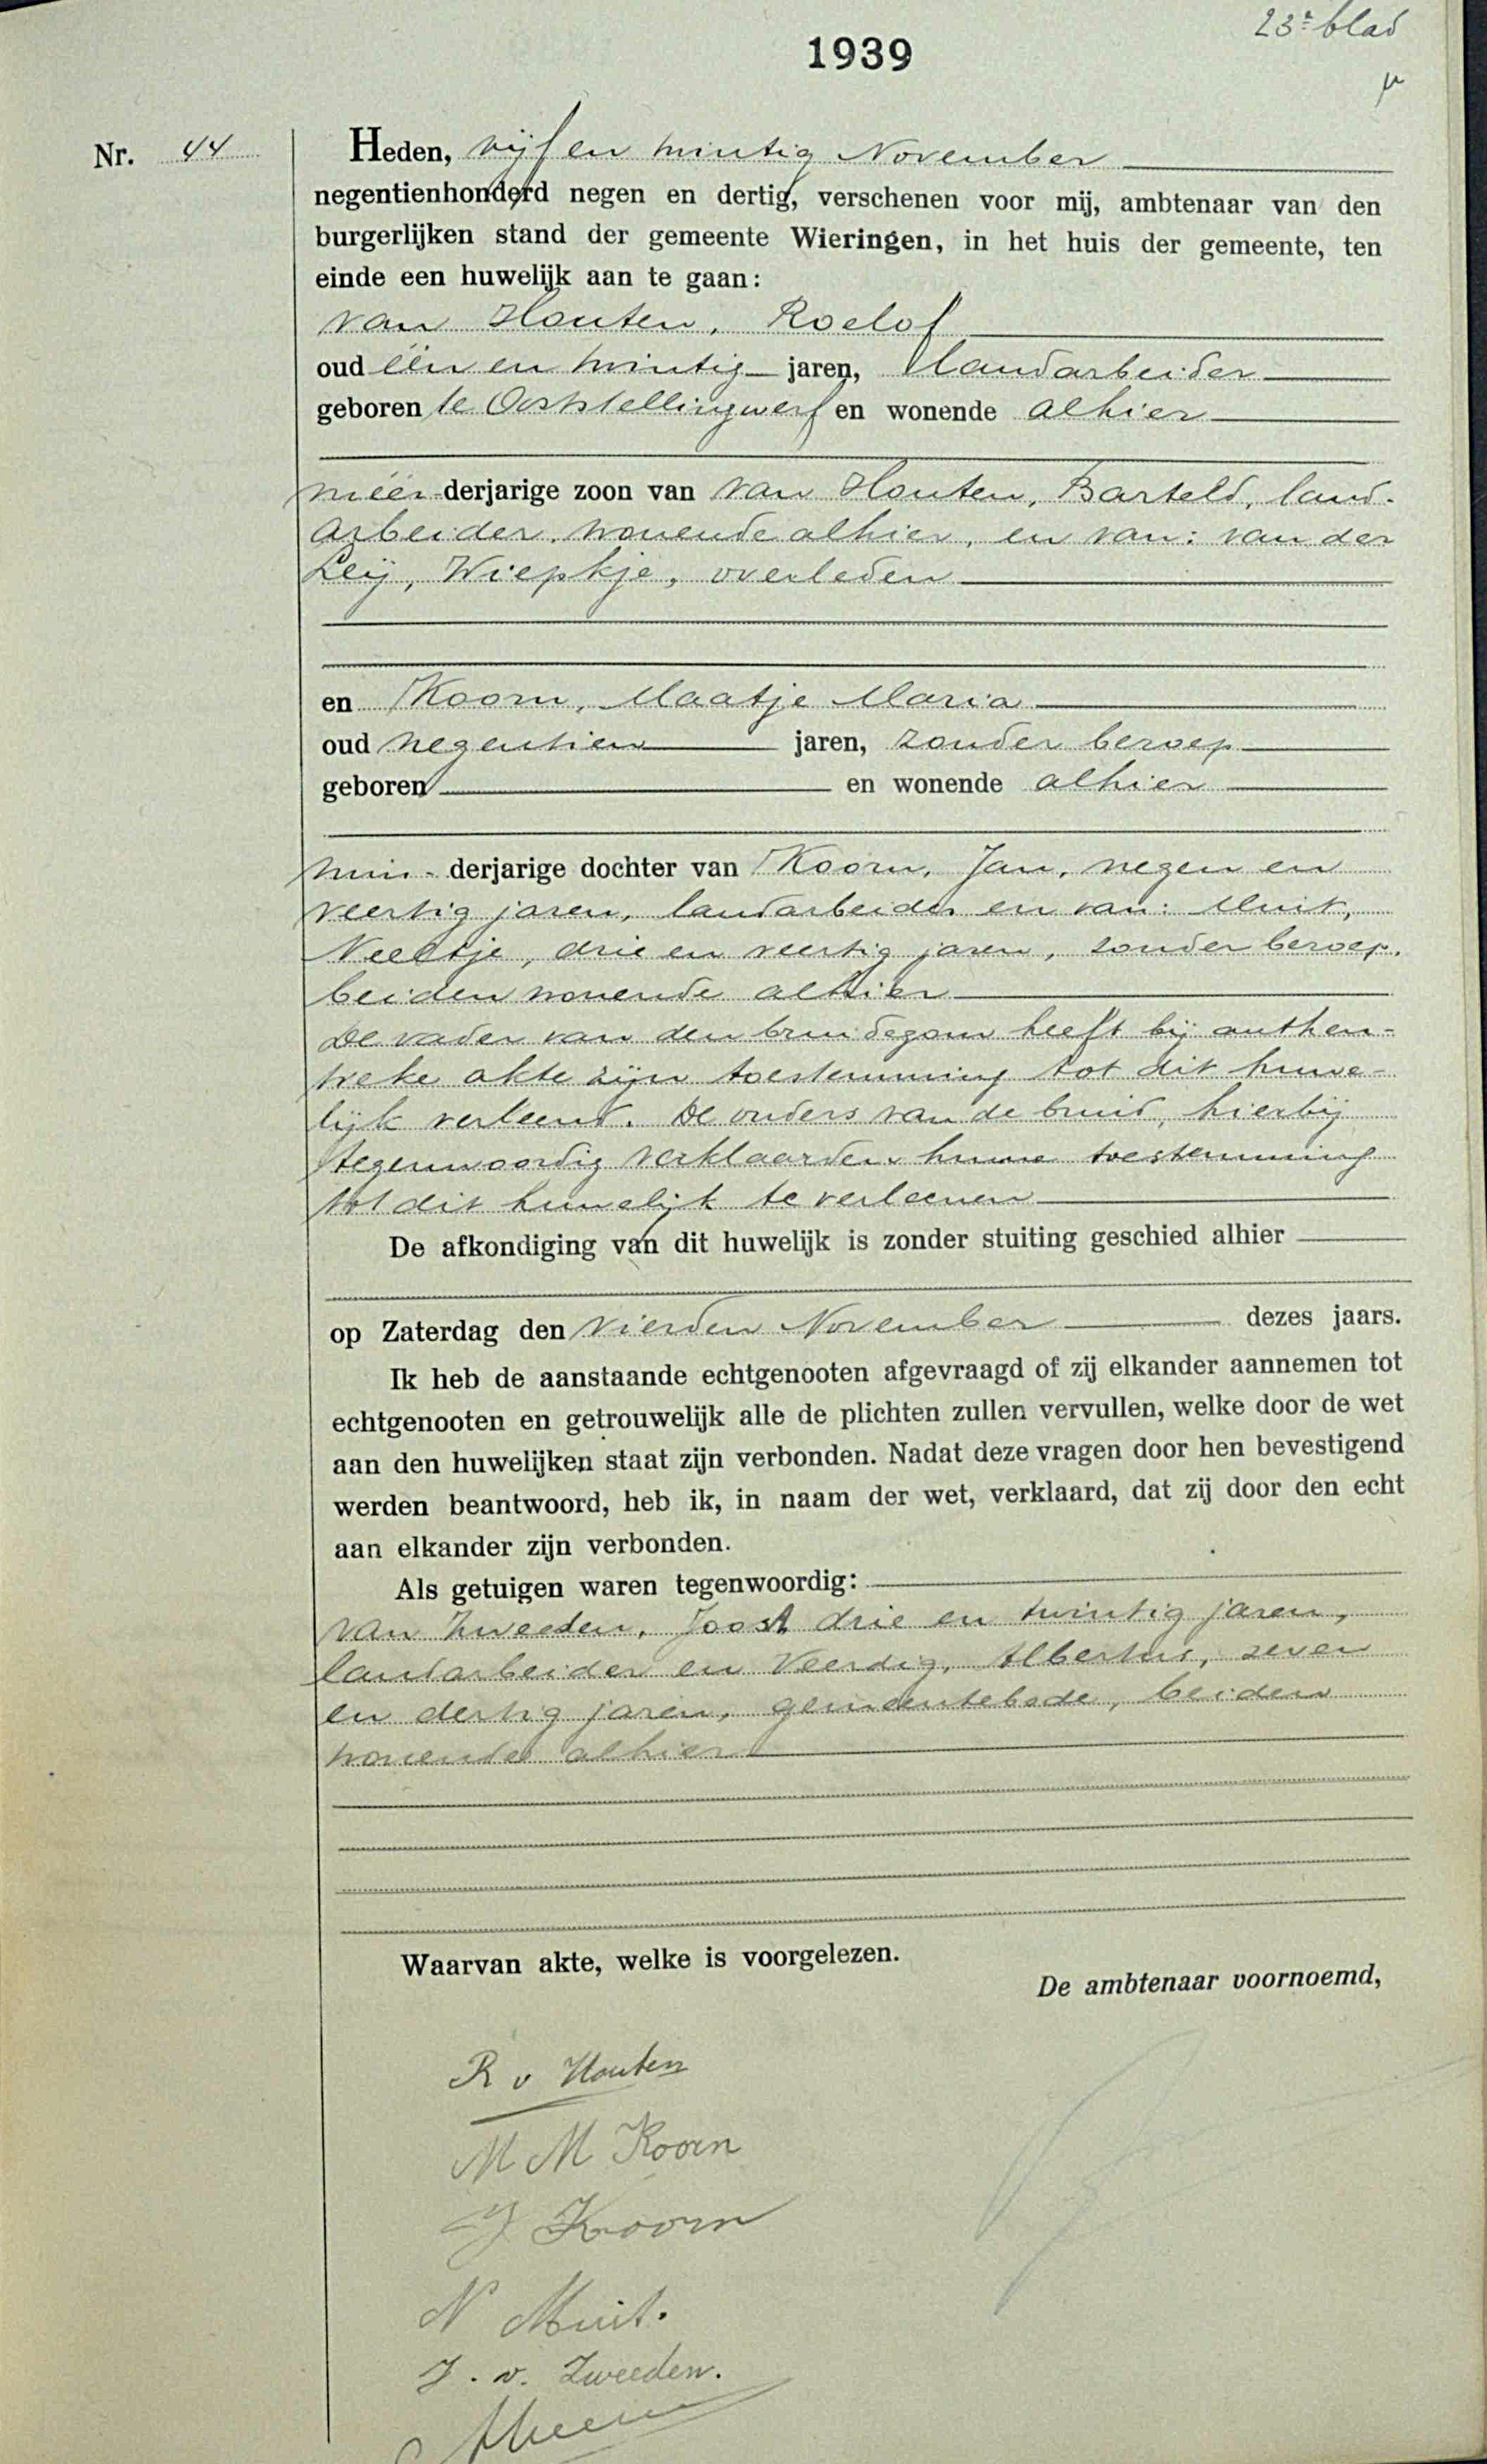 23e blad
1939
Nr. 44
Heden, vijf en twintig November
negentienhonderd negen en dertig, verschenen voor mij, ambtenaar van den
burgerlijken stand der gemeente Wieringen, in het huis der gemeente, ten
einde een huwelijk aan te gaan:
van Houten, Roelof
oud één en twintig jaren, landarbeider
geboren te Ooststellingwerf en wonende alhier
meer-derjarige zoon van van Houten, Barteld, land-
arbeider, wonende alhier, en van: van der
Leij, Wiepkje, overleden
en Koorn, Maatje Maria
oud negentien jaren, zonder beroep
geboren en wonende alhier
min-derjarige dochter van Koorn, Jan, negen en
veertig jaren, landarbeider en van: Muit,
Neeltje, drie en veertig jaren, zonder beroep,
beiden wonende alhier
De vader van den bruidegom heeft bij authen-
tieke akte zijn toestemming tot dit huwe-
lijk verleend. De ouders van de bruid, hierbij
tegenwoordig verklaarden hunne toestemming
tot dit huwelijk te verleenen
De afkondiging van dit huwelijk is zonder stuiting geschied alhier
op Zaterdag den vierden November dezes jaars.
Ik heb de aanstaande echtgenooten afgevraagd of zij elkander aannemen tot
echtgenooten en getrouwelijk alle de plichten zullen vervullen, welke door de wet
aan den huwelijken staat zijn verbonden. Nadat deze vragen door hen bevestigend
werden beantwoord, heb ik, in naam der wet, verklaard, dat zij door den echt
aan elkander zijn verbonden.
Als getuigen waren tegenwoordig:
van Zweeden, Joost drie en twintig jaren,
landarbeider en Veerdig, Albertus, zeven
en dertig jaren, gemeentebode, beiden
wonende alhier
Waarvan akte, welke is voorgelezen.
De ambtenaar voornoemd,
R v Houten
M M Koorn
J Koorn
N Muit.
J. v. Zweeden.